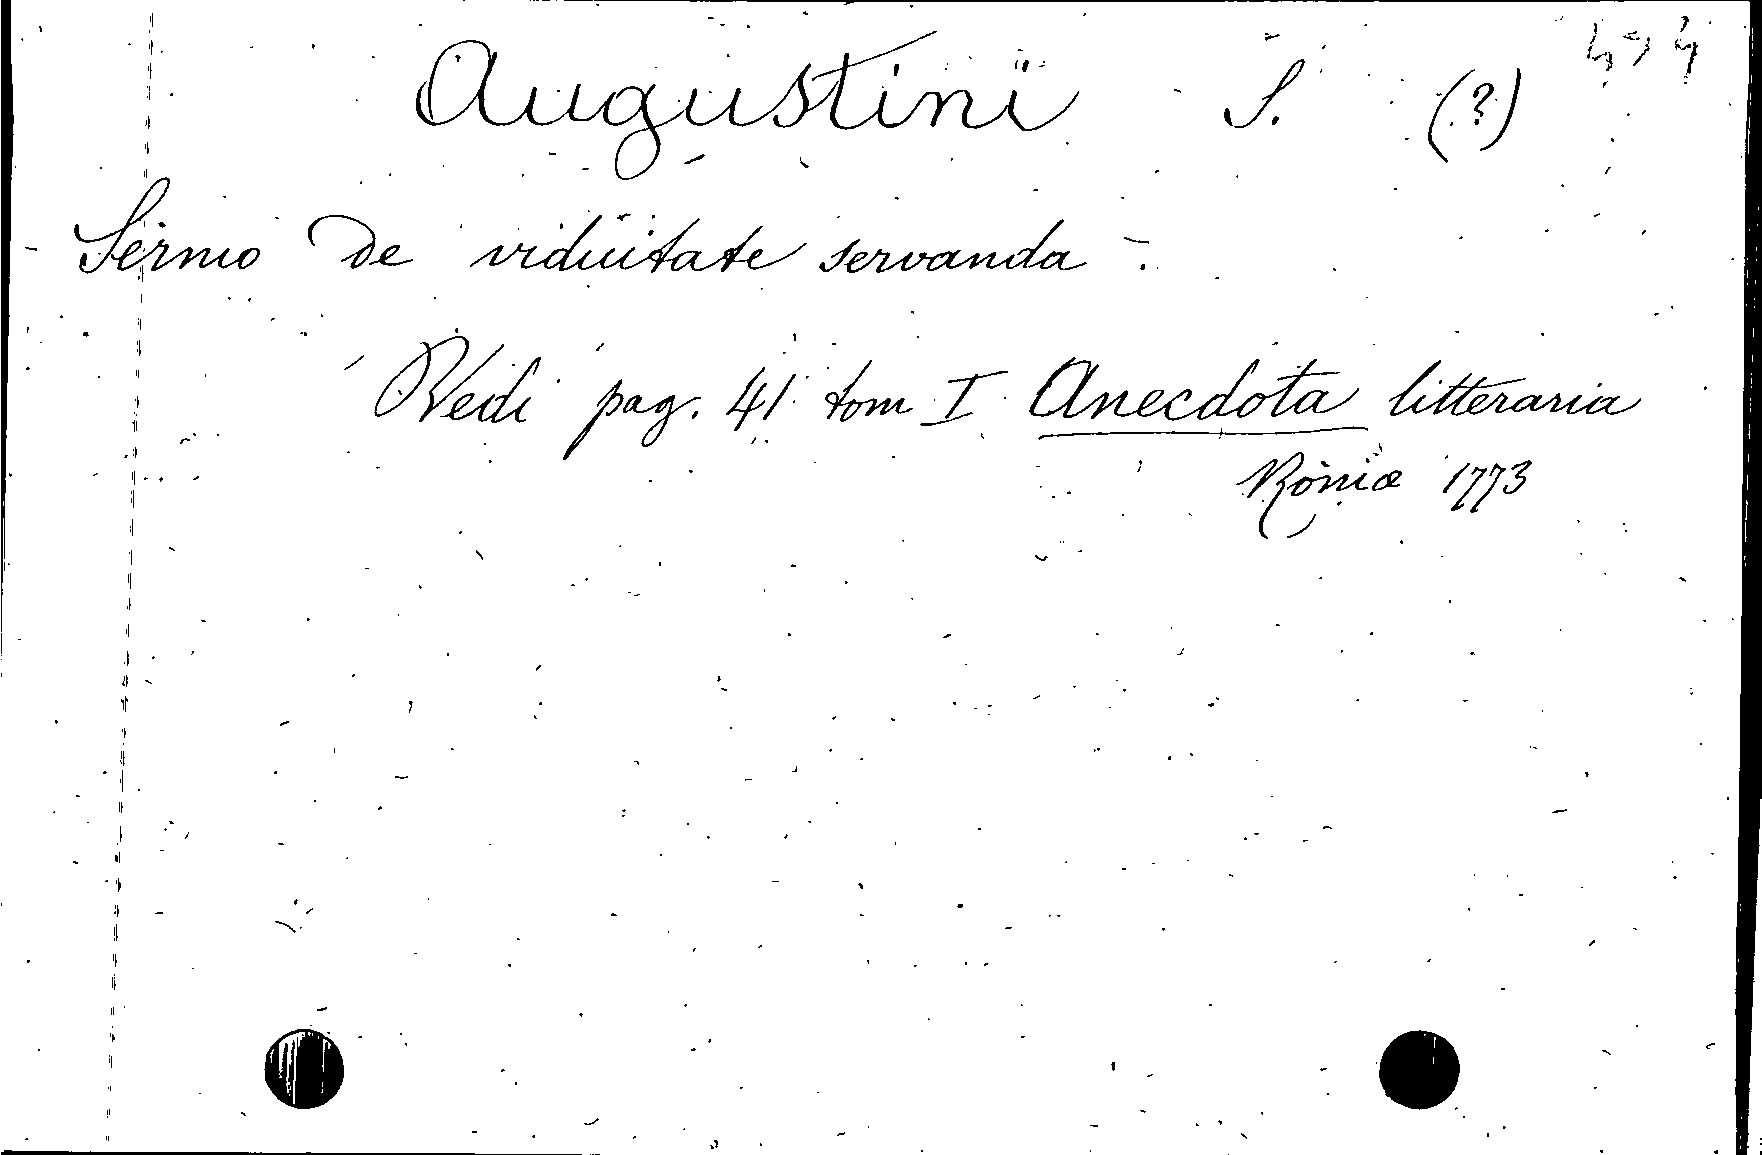 Augustini S. (?)
Sermo De viduitate servanda -
Vedi pag. 41 tom I Anecdota litteraria
Romæ 1773